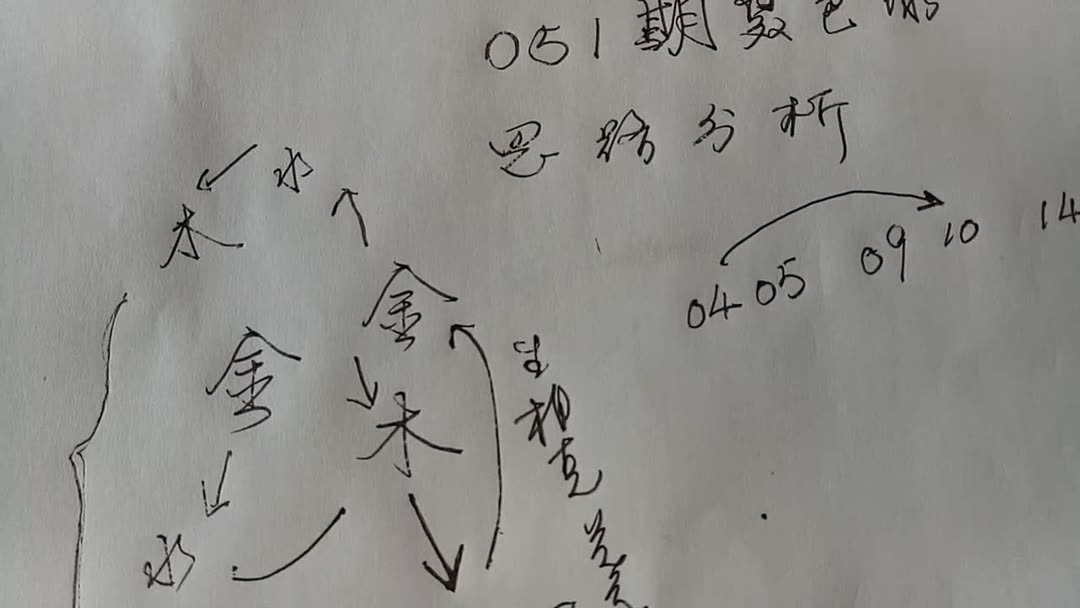 051期双色球
思路分析
水
木
04 05 09 10 14
金
金
木
生
相
克
水